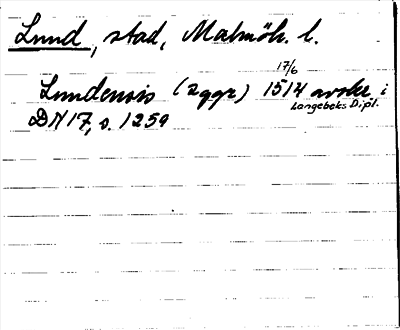 Lund, stad, Malmöh. l.
17/6
Lundensis (2ggr) 1514 avskr i
Langebeks Dipl.
DN 17, s. 1259